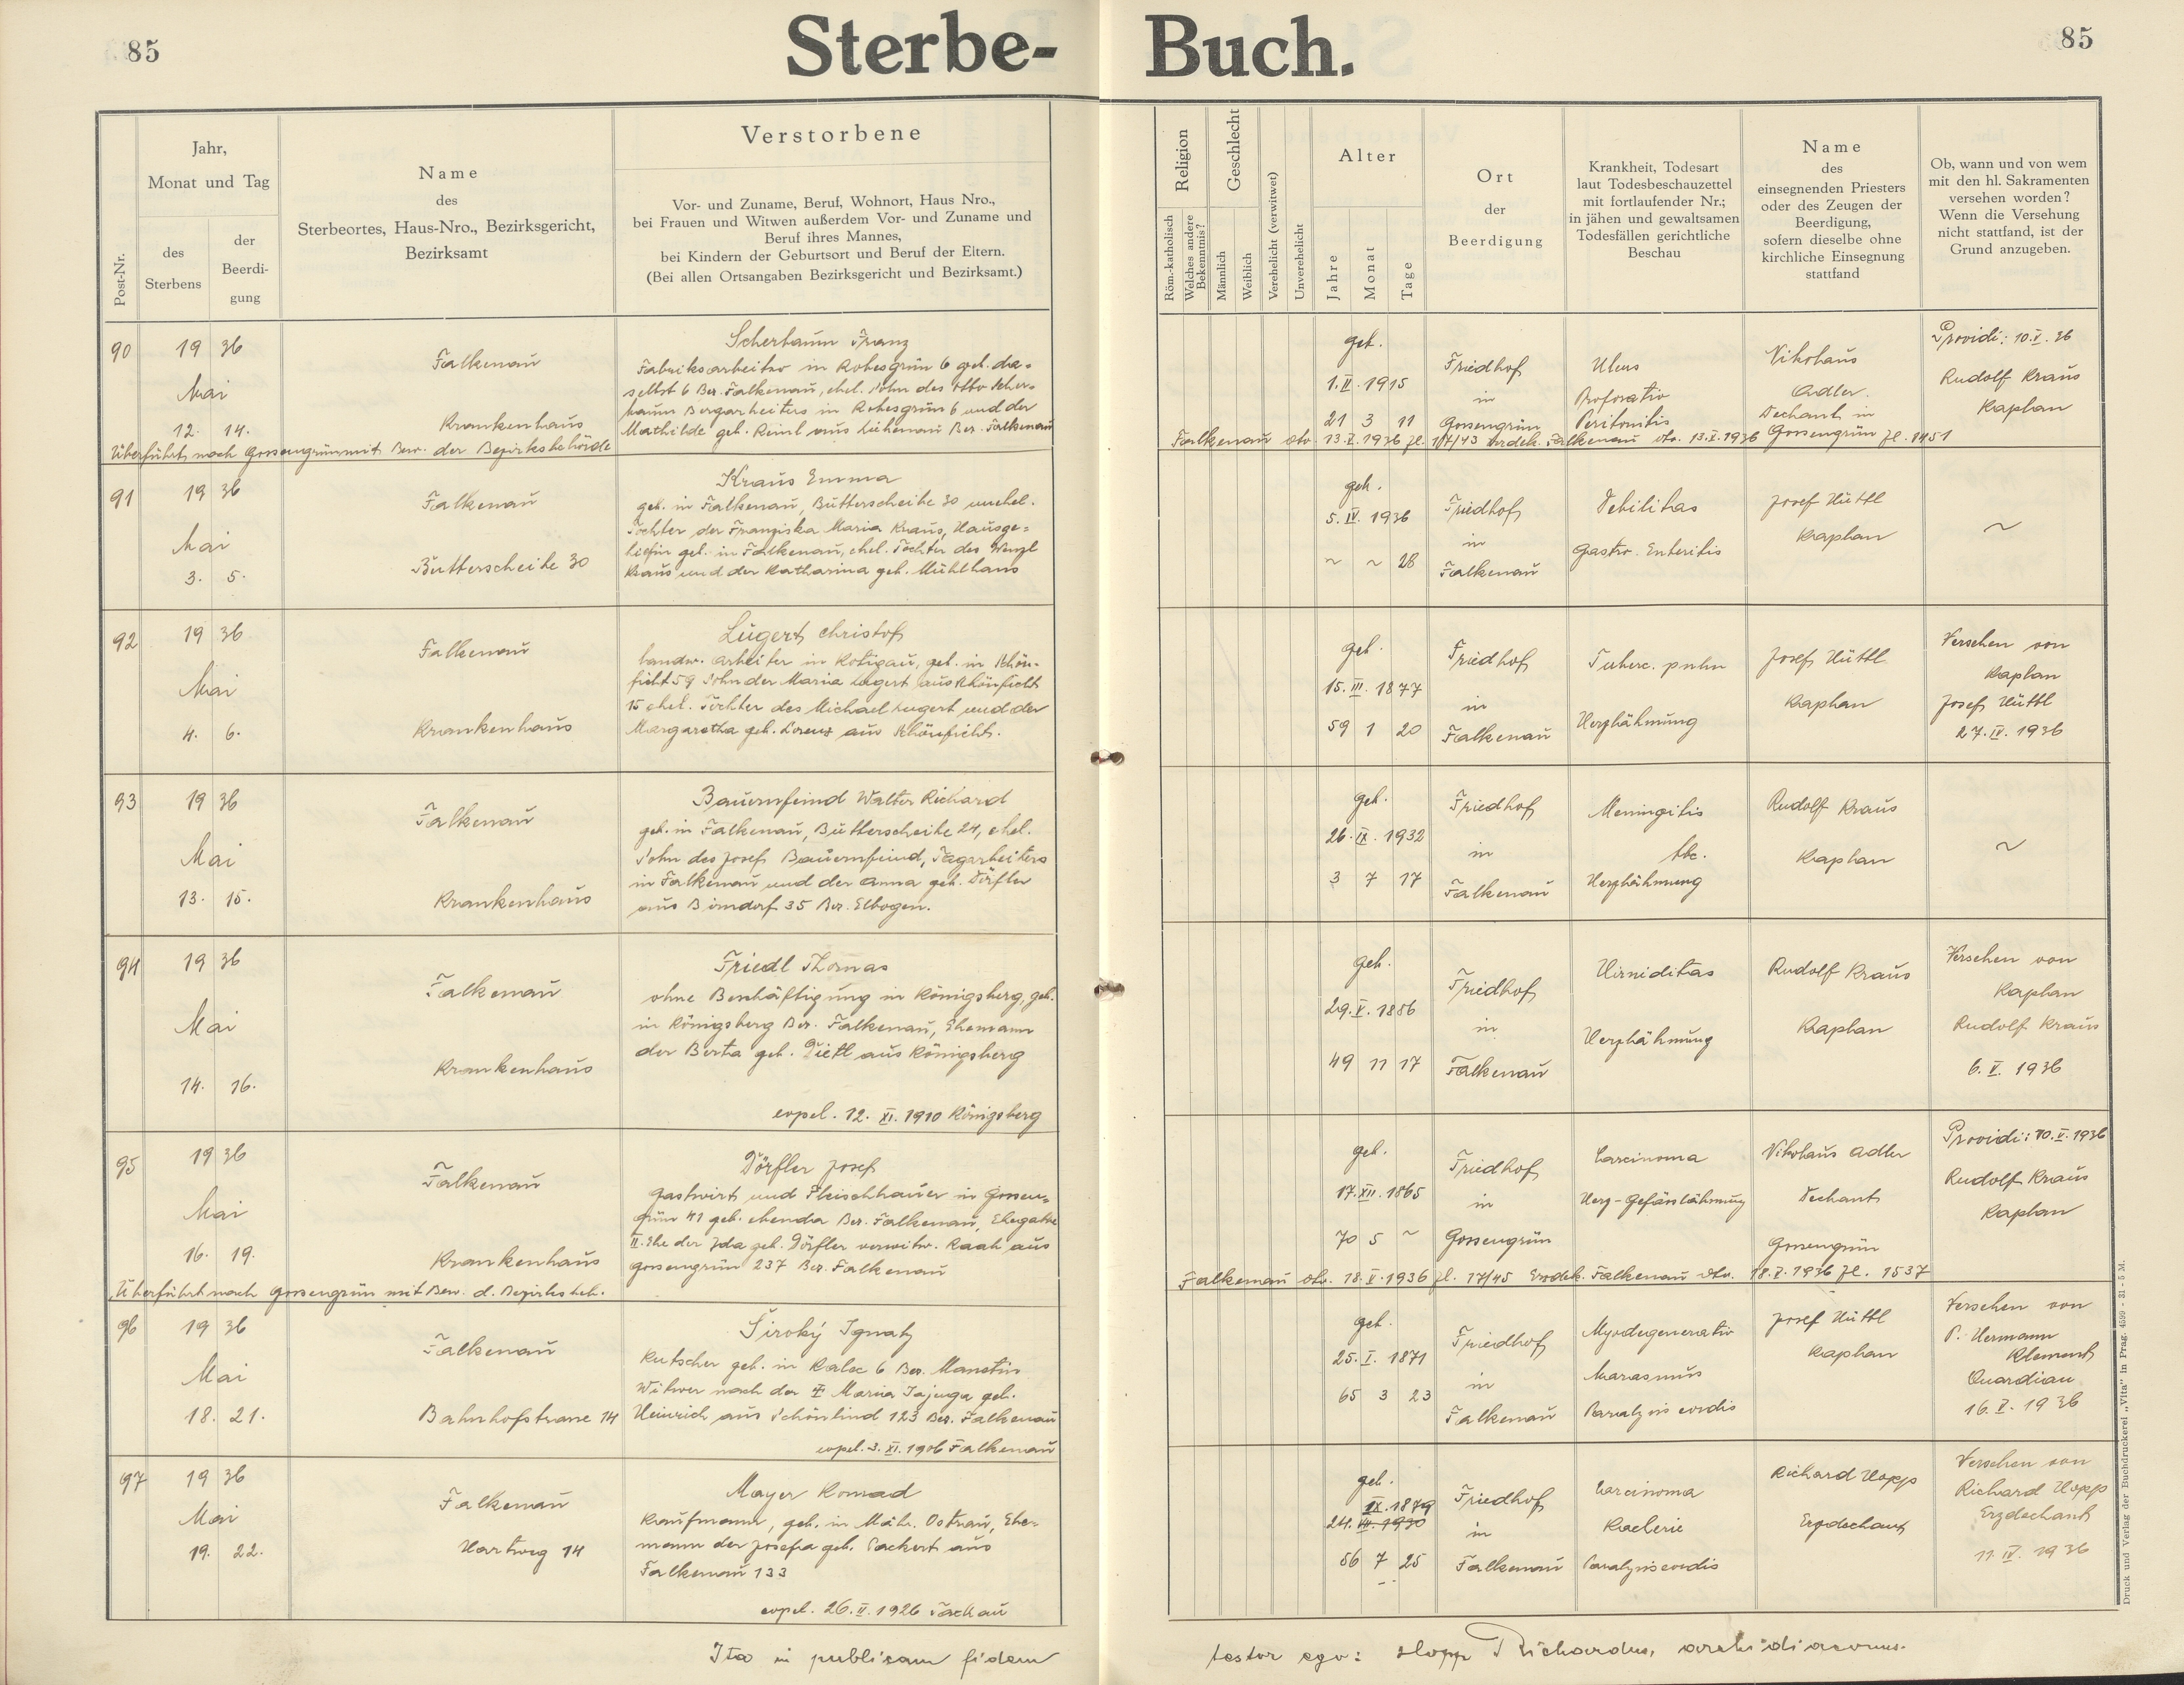 85
Sterbe-Buch.
85
Post-Nr.
Jahr,
Monat und Tag
des
Sterbens
der
Beerdi-
gung
Name
des
Sterbeortes, Haus-Nro., Bezirksgericht,
Bezirksamt
Verstorbene
Vor- und Zuname, Beruf, Wohnort, Haus Nro.,
bei Frauen und Witwen außerdem Vor- und Zuname und
Beruf ihres Mannes,
bei Kindern der Geburtsort und Beruf der Eltern.
(Bei allen Ortsangaben Bezirksgericht und Bezirksamt.)
Religion
Röm.-katholisch
Welches andere
Bekenntnis?
Geschlecht
Männlich
Weiblich
Verehelicht (verwitwet)
Unverehelicht
Alter
Jahre
Monat
Tage
Ort
der
Beerdigung
Krankheit, Todesart
laut Todesbeschauzettel
mit fortlaufender Nr.;
in jähen und gewaltsamen
Todesfällen gerichtliche
Beschau
Name
des
einsegnenden Priesters
oder des Zeugen der
Beerdigung,
sofern dieselbe ohne
kirchliche Einsegnung
stattfand
Ob, wann und von wem
mit den hl. Sakramenten
versehen worden?
Wenn die Versehung
nicht stattfand, ist der
Grund anzugeben.
90
19 36
Mai
12. 14.
Falkenau
Krankenhaus
Scherbaum Franz
Fabriksarbeiter in Robesgrün 6 geb. da-
selbst 6 Bez. Falkenau, ehel. Sohn des Otto Scher-
baum Bergarbeiters in Robesgrün 6 und der
Mathilde geb. Reinl aus Liebenau Bez. Falkenau
geb.
1. II. 1915
21 3 11
Friedhof
in
Gossengrün
Ulcus
Perforatio
Peritonitis
Nikolaus
Adler.
Dechant in
Gossengrün
Providi: 10.V. 36
Rudolf Kraus
Kaplan
Überführt nach Gossengrün mit Bew. der Bezirksbehörde Falkenau dto. 13.V.1936 Zl. 17/43 Erzdek. Falkenau dto. 13.V.1936 Zl. 1451
91
19 36
Mai
3. 5.
Falkenau
Butterscheibe 30
Kraus Emma
geb. in Falkenau, Butterscheibe 30 unehel.
Tochter der Franziska Maria Kraus, Hausge-
hilfin geb. in Falkenau, ehel. Tochter des Wenzl
Kraus und der Katharina geb. Mühlhans
geb.
5. IV. 1936
~ ~ 28
Friedhof
in
Falkenau
Debilitas
Gastro. Enteritis
Josef Hüttl
Kaplan
~
92
19 36
Mai
4. 6.
Falkenau
Krankenhaus
Lugert Christof
landw. Arbeiter in Kotigau, geb. in Schön-
ficht 59 Sohn der Maria Lugert aus Schönficht
15 ehel. Tochter des Michael Lugert und der
Margaretha geb. Lorenz aus Schönficht.
geb.
15. III. 1877
59 1 20
Friedhof
in
Falkenau
Tuberc. pulm
Herzlähmung
Josef Hüttl
Kaplan
Versehen von
Kaplan
Josef Hüttl
27. IV. 1936
93
19 36
Mai
13. 15.
Falkenau
Krankenhaus
Bauernfeind Walter Richard
geb. in Falkenau, Butterscheibe 24, ehel.
Sohn des Josef Bauernfeind, Tagarbeiters
in Falkenau und der Anna geb. Dörfler
aus Birndorf 35 Bez. Elbogen.
geb.
26. IX. 1932
3 7 17
Friedhof
in
Falkenau
Meningitis
tbc.
Herzlähmung
Rudolf Kraus
Kaplan
~
94
19 36
Mai
14. 16.
Falkenau
Krankenhaus
Friedl Thomas
ohne Beschäftigung in Königsberg, geb.
in Königsberg Bez. Falkenau, Ehemann
der Berta geb. Dietl aus Königsberg
copul. 12. XI. 1910 Königsberg
geb.
29. V. 1886
49 11 17
Friedhof
in
Falkenau
Herzlähmung
Rudolf Kraus
Kaplan
Versehen von
Kaplan
Rudolf Kraus
6. V. 1936
95
19 36
Mai
16. 19.
Falkenau
Krankenhaus
Dörfler Josef
Gastwirt und Fleischhauer in Gossen-
grün 41 geb. ebenda Bez. Falkenau, Ehegatte
II. Ehe der Ida geb. Dörfler verwitw. Raab aus
Gossengrün 237 Bez. Falkenau
geb.
17. XII. 1865
70 5 ~
Friedhof
in
Gossengrün
Carcinoma
Herz-Gefässlähmung
Nikolaus Adler
Dechant
Gossengrün
Providi: 10. V. 1936
Rudolf Kraus
Kaplan
Überführt nach Gossengrün mit Bew. d. Bezirksbeh. Falkenau dto. 18. V. 1936 Zl. 17/45 Erzdek. Falkenau dto. 18. V. 1936 Zl. 1537
96
19 36
Mai
18. 21.
Falkenau
Bahnhofstrasse 14
Široký Ignatz
Kutscher geb. in Kalec 6 Bez. Manetin
Witwer nach der Maria Jajuga geb.
Heinrich aus Schönlind 123 Bez. Falkenau
copul. 3. XI. 1906 Falkenau
geb.
25. I. 1871
65 3 23
Friedhof
in
Falkenau
Myodegeneratio
Marasmus
Paralysis cordis
Josef Hüttl
Kaplan
Versehen von
P. Hermann
Klement
Quardian
16. V. 1936
97
19 36
Mai
19. 22.
Falkenau
Hartweg 14
Mayer Konrad
Kaufmann, geb. in Mähr. Ostrau, Ehe-
mann der Josefa geb. Packert aus
Falkenau 133
copul. 26. II. 1926 Tachau
geb.
IX. 1879
24. VII. 1930
56 7 25
Friedhof
in
Falkenau
Carcinoma
Paralysis cordis
Richard Hopp
Erzdechant
Versehen von
Richard Hopp
Erzdechant
11. IV. 1936
Ita in publicam fidem testor ego: Hopp Richardus, archidiaconus.
Druck und Verlag der Buchdruckerei „Vita" in Prag. 4599 - 31 - 5 M.